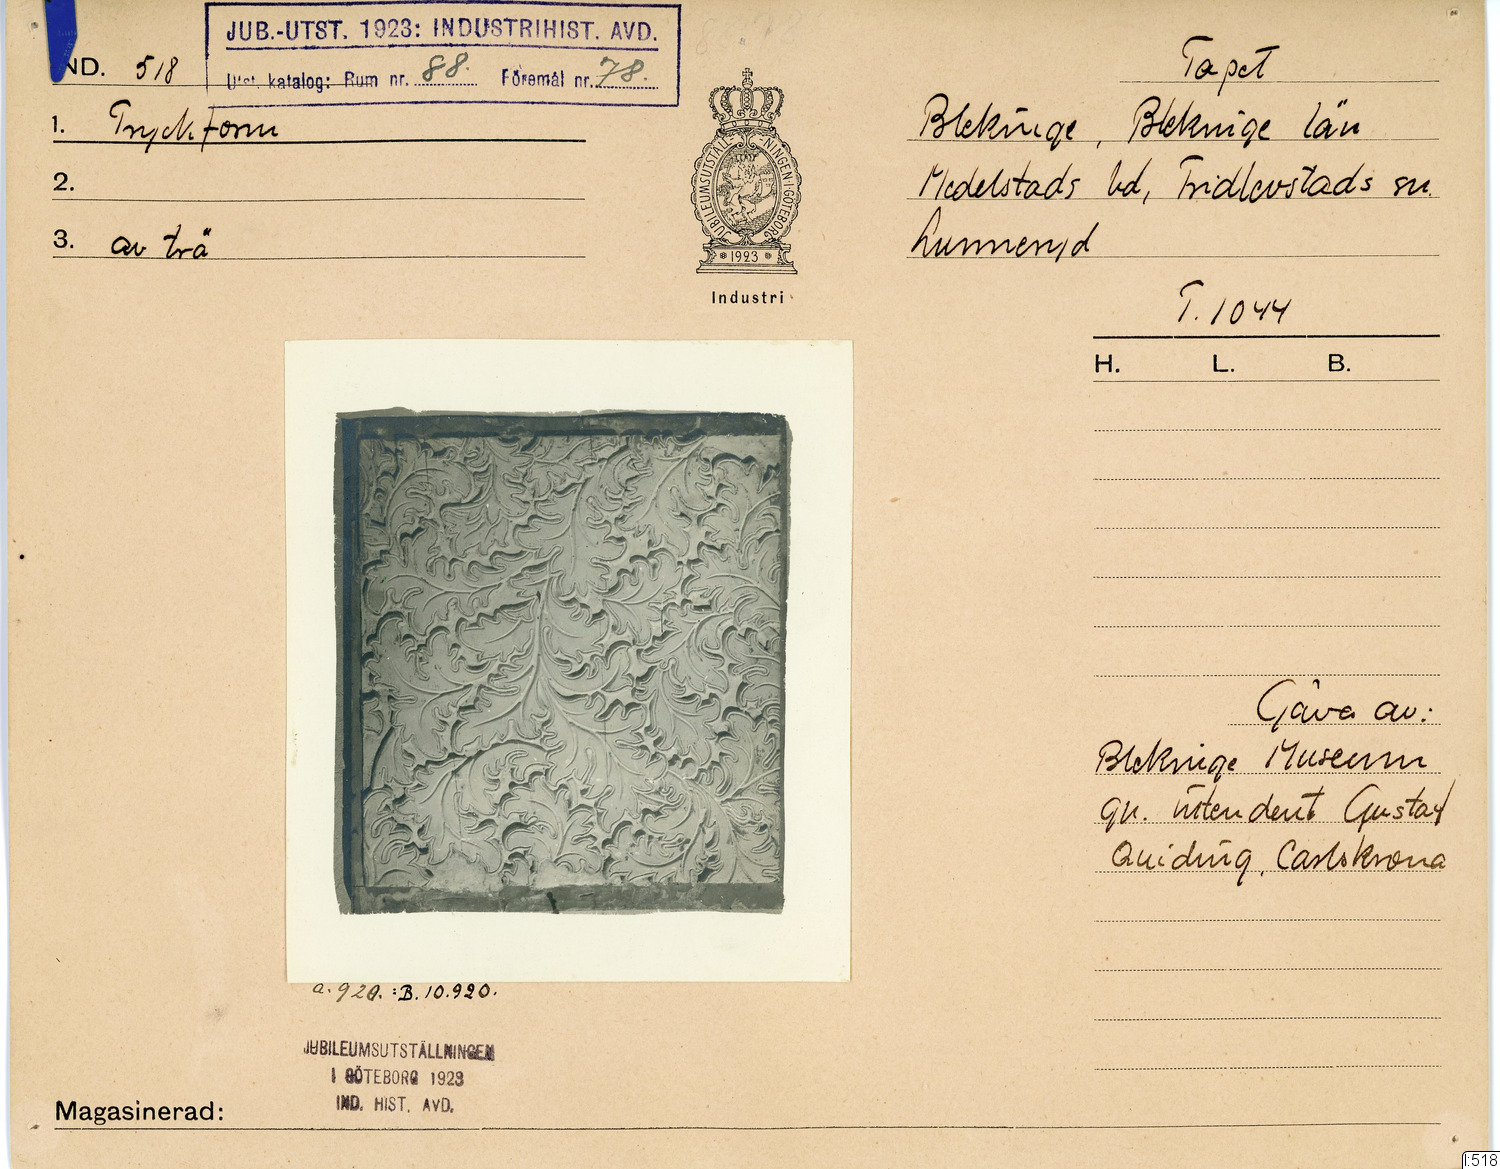 JUB.-UTST. 1923: INDUSTRIHIST. AVD.
Utst. katalog: Rum nr. 88. Föremål nr. 78.
ND. 518
1. Tryckform
2.
3. av trä
JUBILEUMSUTSTÄLLNINGEN I GÖTEBORG
1923
Industri
Tapet
Blekinge, Blekinge län
Medelstads hd, Fridlevstads sn.
T. 1044
H. L. B.
Gåva av:
Blekinge Museum
gn. intendent Gustaf
Quiding, Carlskrona
a. 920. : B. 10.920.
JUBILEUMSUTSTÄLLNINGEN
I GÖTEBORG 1923
IND. HIST. AVD.
Magasinerad:
I:518